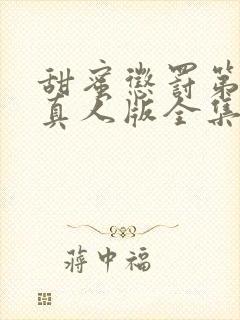 甜蜜惩罚第
真人版全集
蒋中福